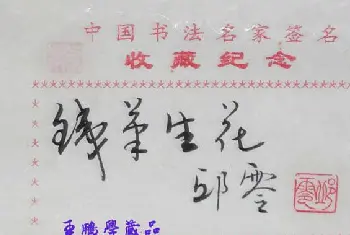 中国书法名家签名
收藏纪念
铁笔生花
邱零